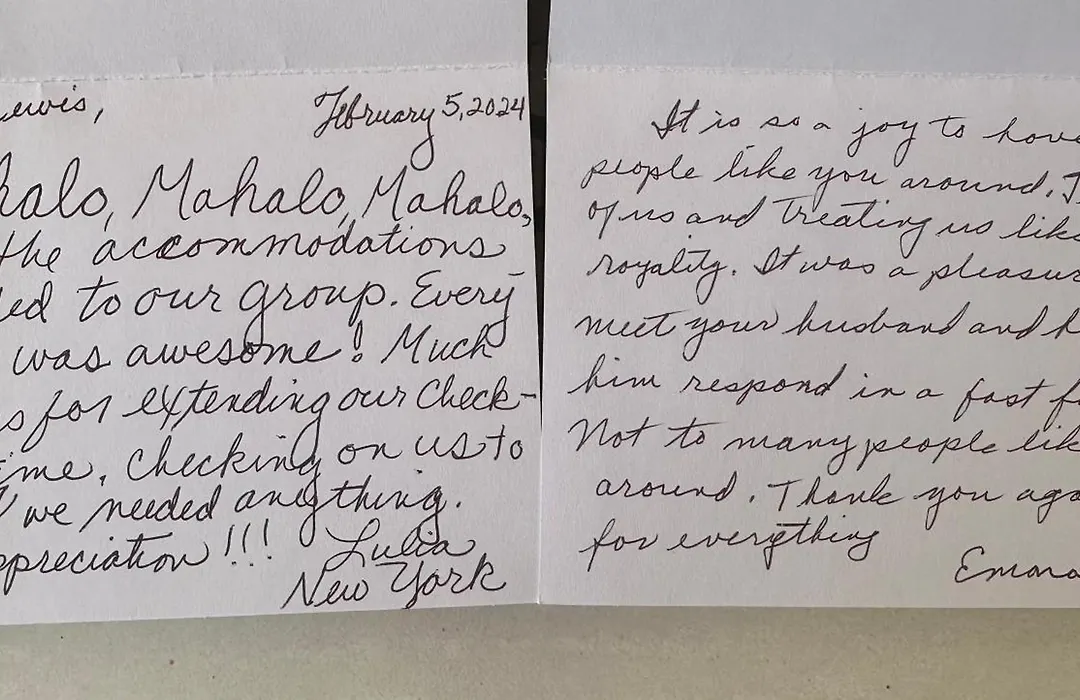 ewis,
February 5, 2024
halo, Mahalo, Mahalo,
the accommodations
ed to our group. Every
was awesome! Much
s for extending our Check-
ime, Checking on us to
we needed anything.
ppreciation!!!
Lulia
New York
It is so a joy to have
people like you around. T
of us and treating us like
royality. It was a pleasur
meet your husband and h
him respond in a fast f
Not to many people lik
around. Thank you aga
for everything
Emma